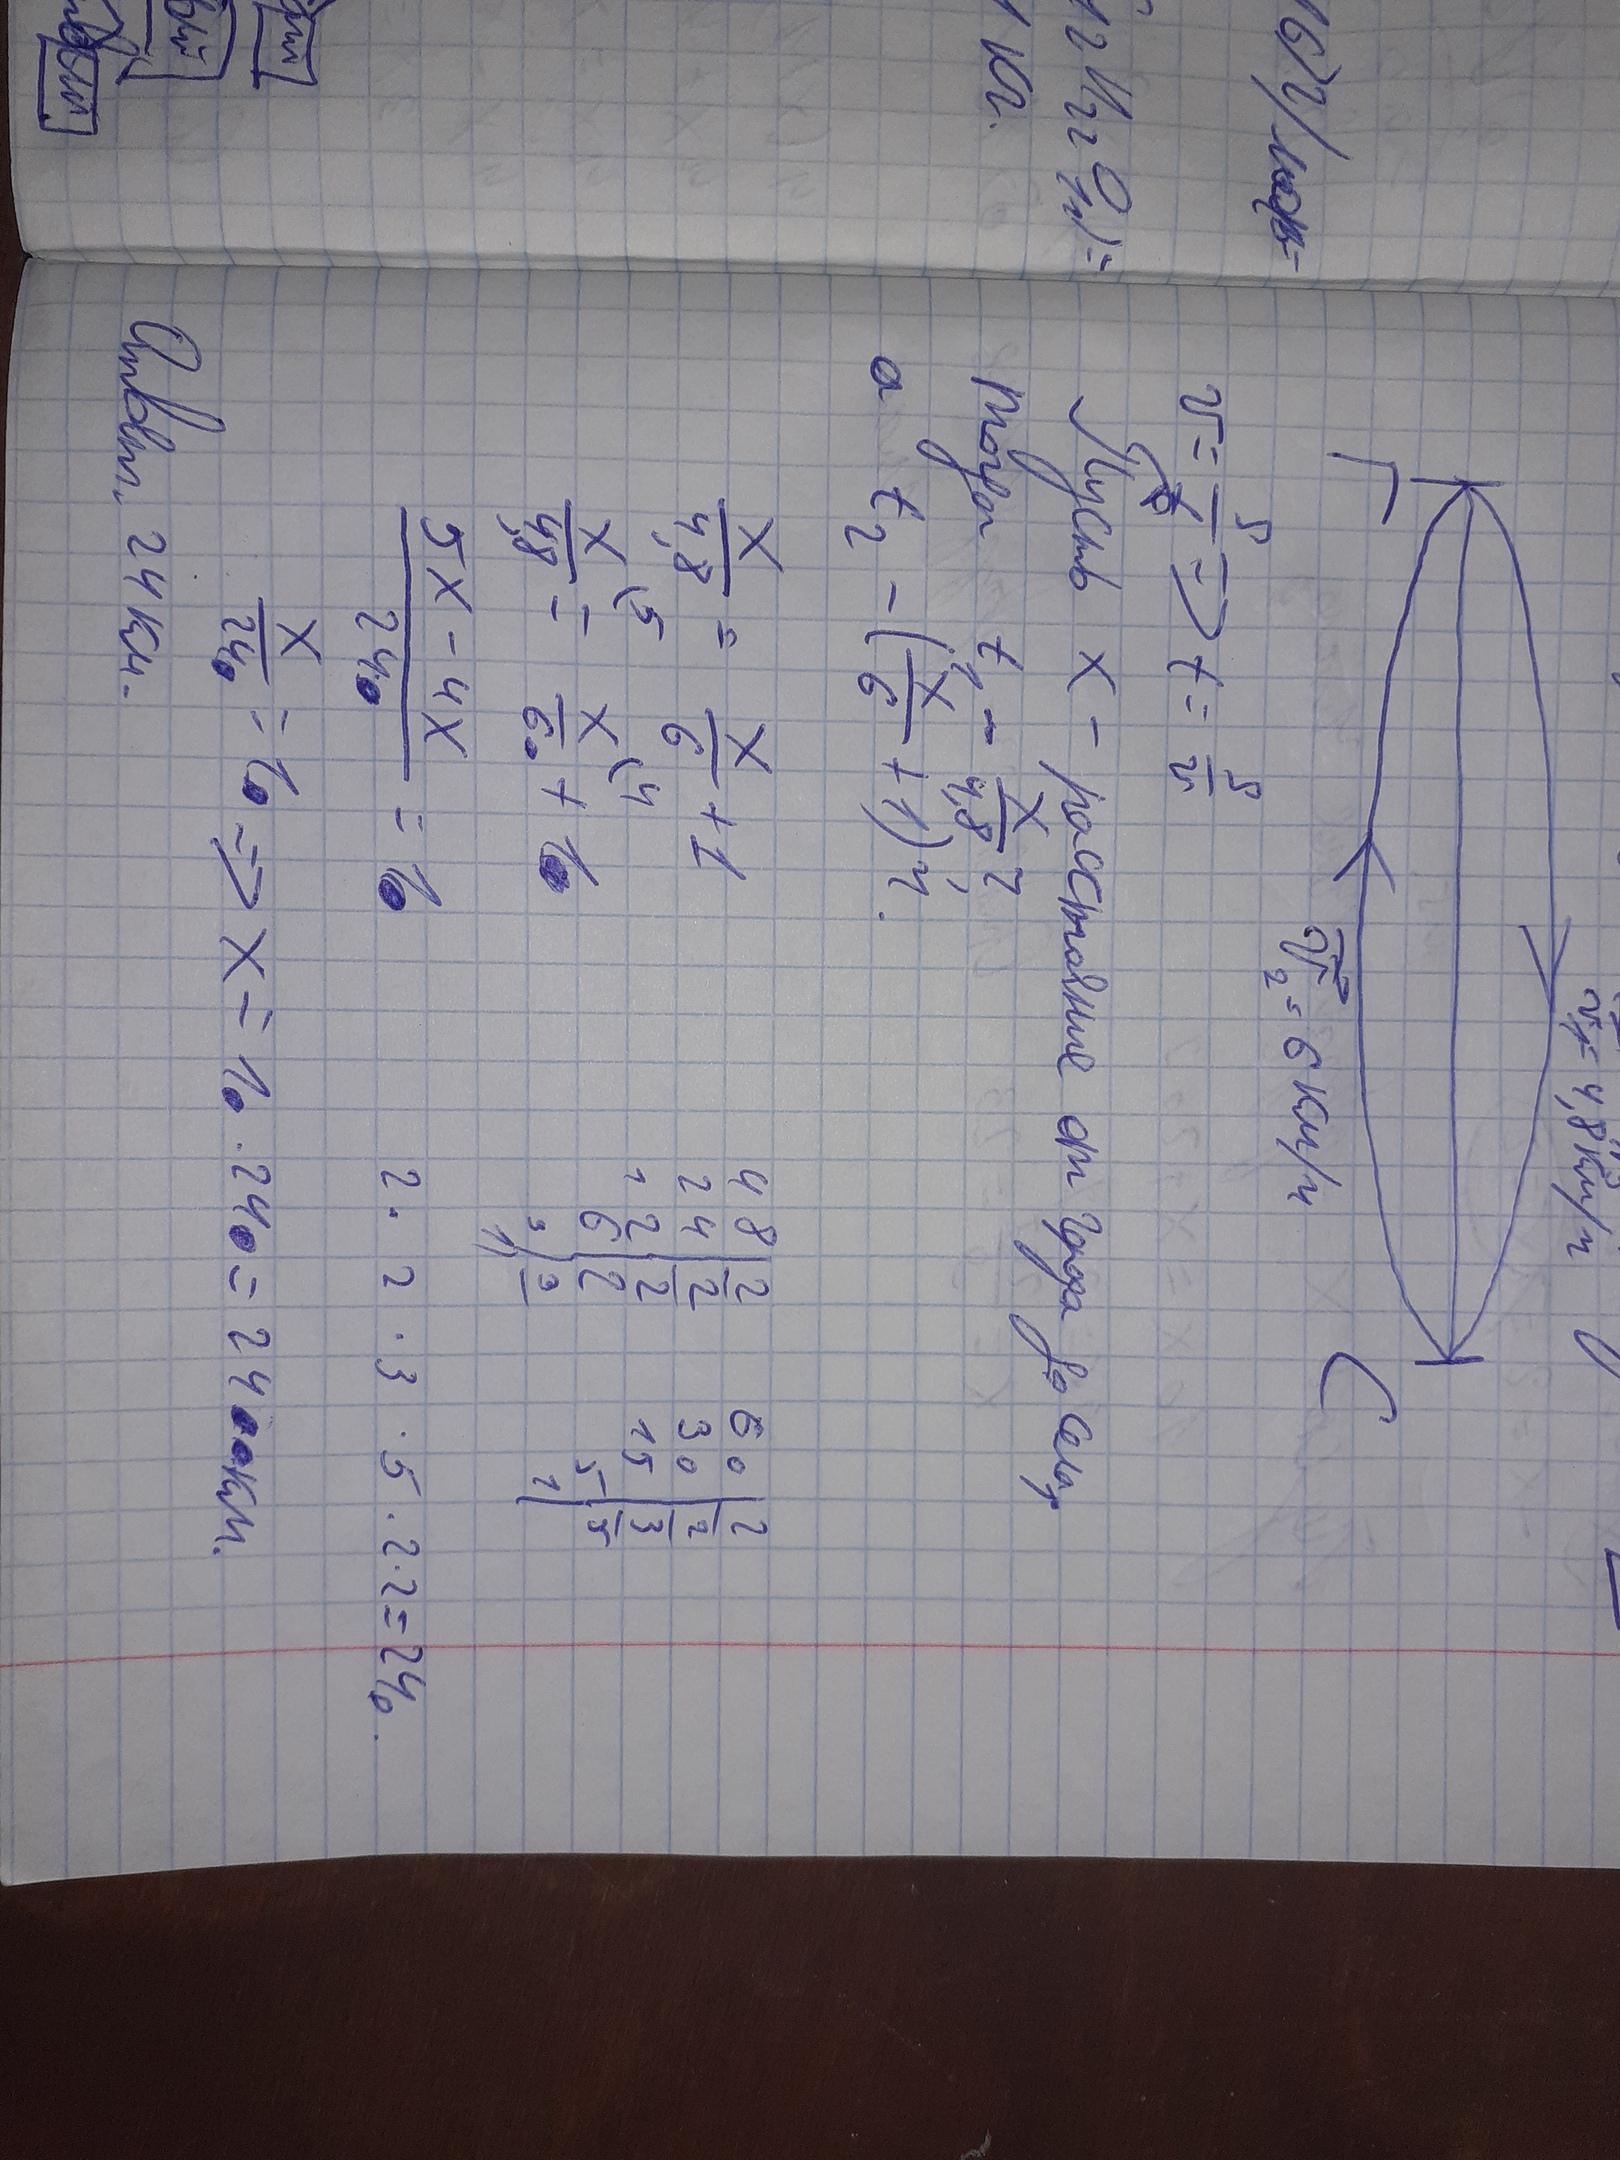 v₁ = 4,8 км/ч
Г
С
v₂ = 6 км/ч
v = S/t => t = S/v
Пусть x - расстояние от города до села,
тогда t₁ - x/4,8 ч,
а t₂ - (x/6 + 1) ч.
x/4,8 = x/6 + 1
x/48 (5 - x/60 (4 + 10
5x - 4x/240 = 10
x/240 = 10 => x = 10 · 240 = 24 км.
Ответ. 24 км.
48 | 2
24 | 2
12 | 2
6 | 2
3 | 3
1
60 | 2
30 | 2
15 | 3
5 | 5
1
2 · 2 · 3 · 5 · 2 · 2 = 240.
1 кг.